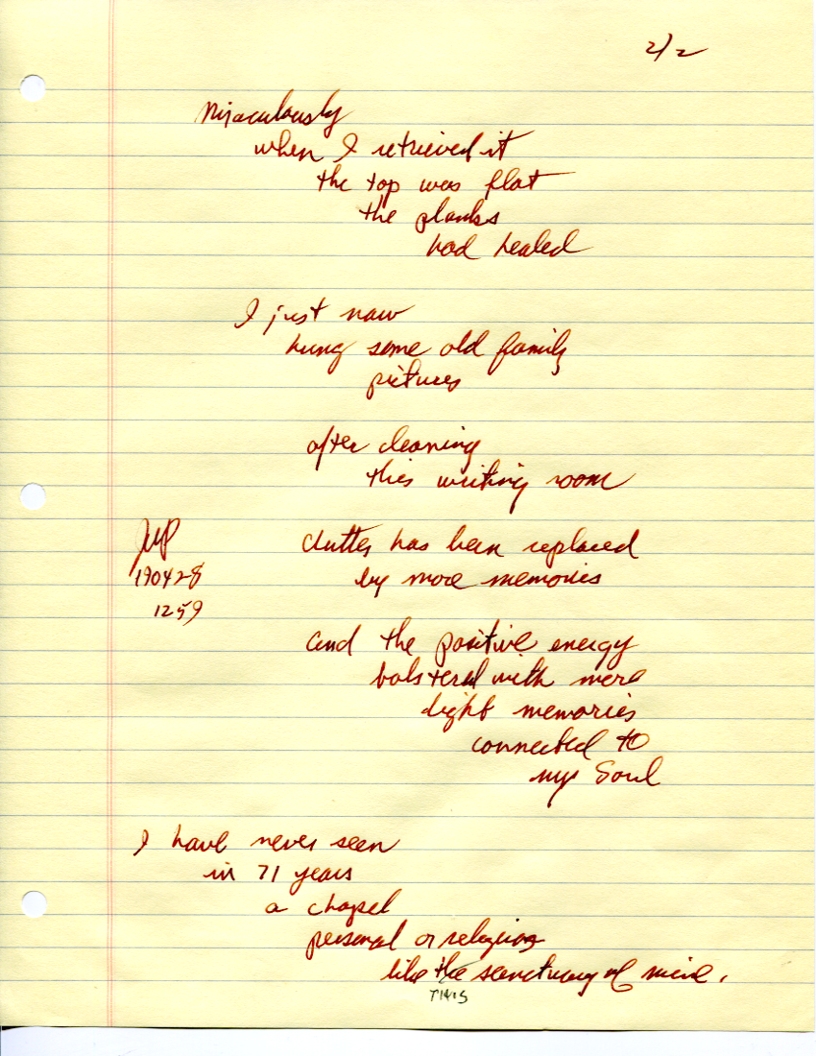 2/2
Miraculously
when I retrieved it
the top was flat
the planks
had healed
I just now
hung some old family
pictures
after cleaning
this writing room
JMP
190428
1259
clutter has been replaced
by more memories
and the positive energy
bolstered with mere
light memories
connected to
my Soul
I have never seen
in 71 years
a chapel
personal or religious
like the sanctuary of mine.
THIS